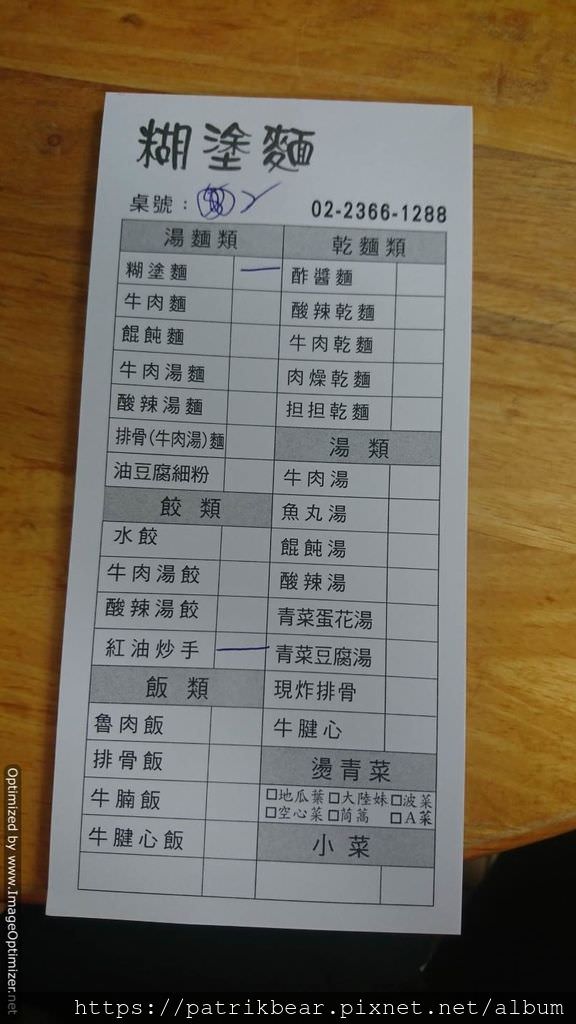 糊塗麵
桌號： 2
02-2366-1288
湯麵類
糊塗麵 一
牛肉麵
餛飩麵
牛肉湯麵
酸辣湯麵
排骨(牛肉湯)麵
油豆腐細粉
餃類
水餃
牛肉湯餃
酸辣湯餃
紅油炒手 一
飯類
魯肉飯
排骨飯
牛腩飯
牛腱心飯
乾麵類
酢醬麵
酸辣乾麵
牛肉乾麵
肉燥乾麵
担担乾麵
湯類
牛肉湯
魚丸湯
餛飩湯
酸辣湯
青菜蛋花湯
青菜豆腐湯
現炸排骨
牛腱心
燙青菜
□地瓜葉 □大陸妹 □波菜
□空心菜 □茼蒿 □A菜
小菜
Optimized by www.ImageOptimizer.net
https://patrikbear.pixnet.net/album